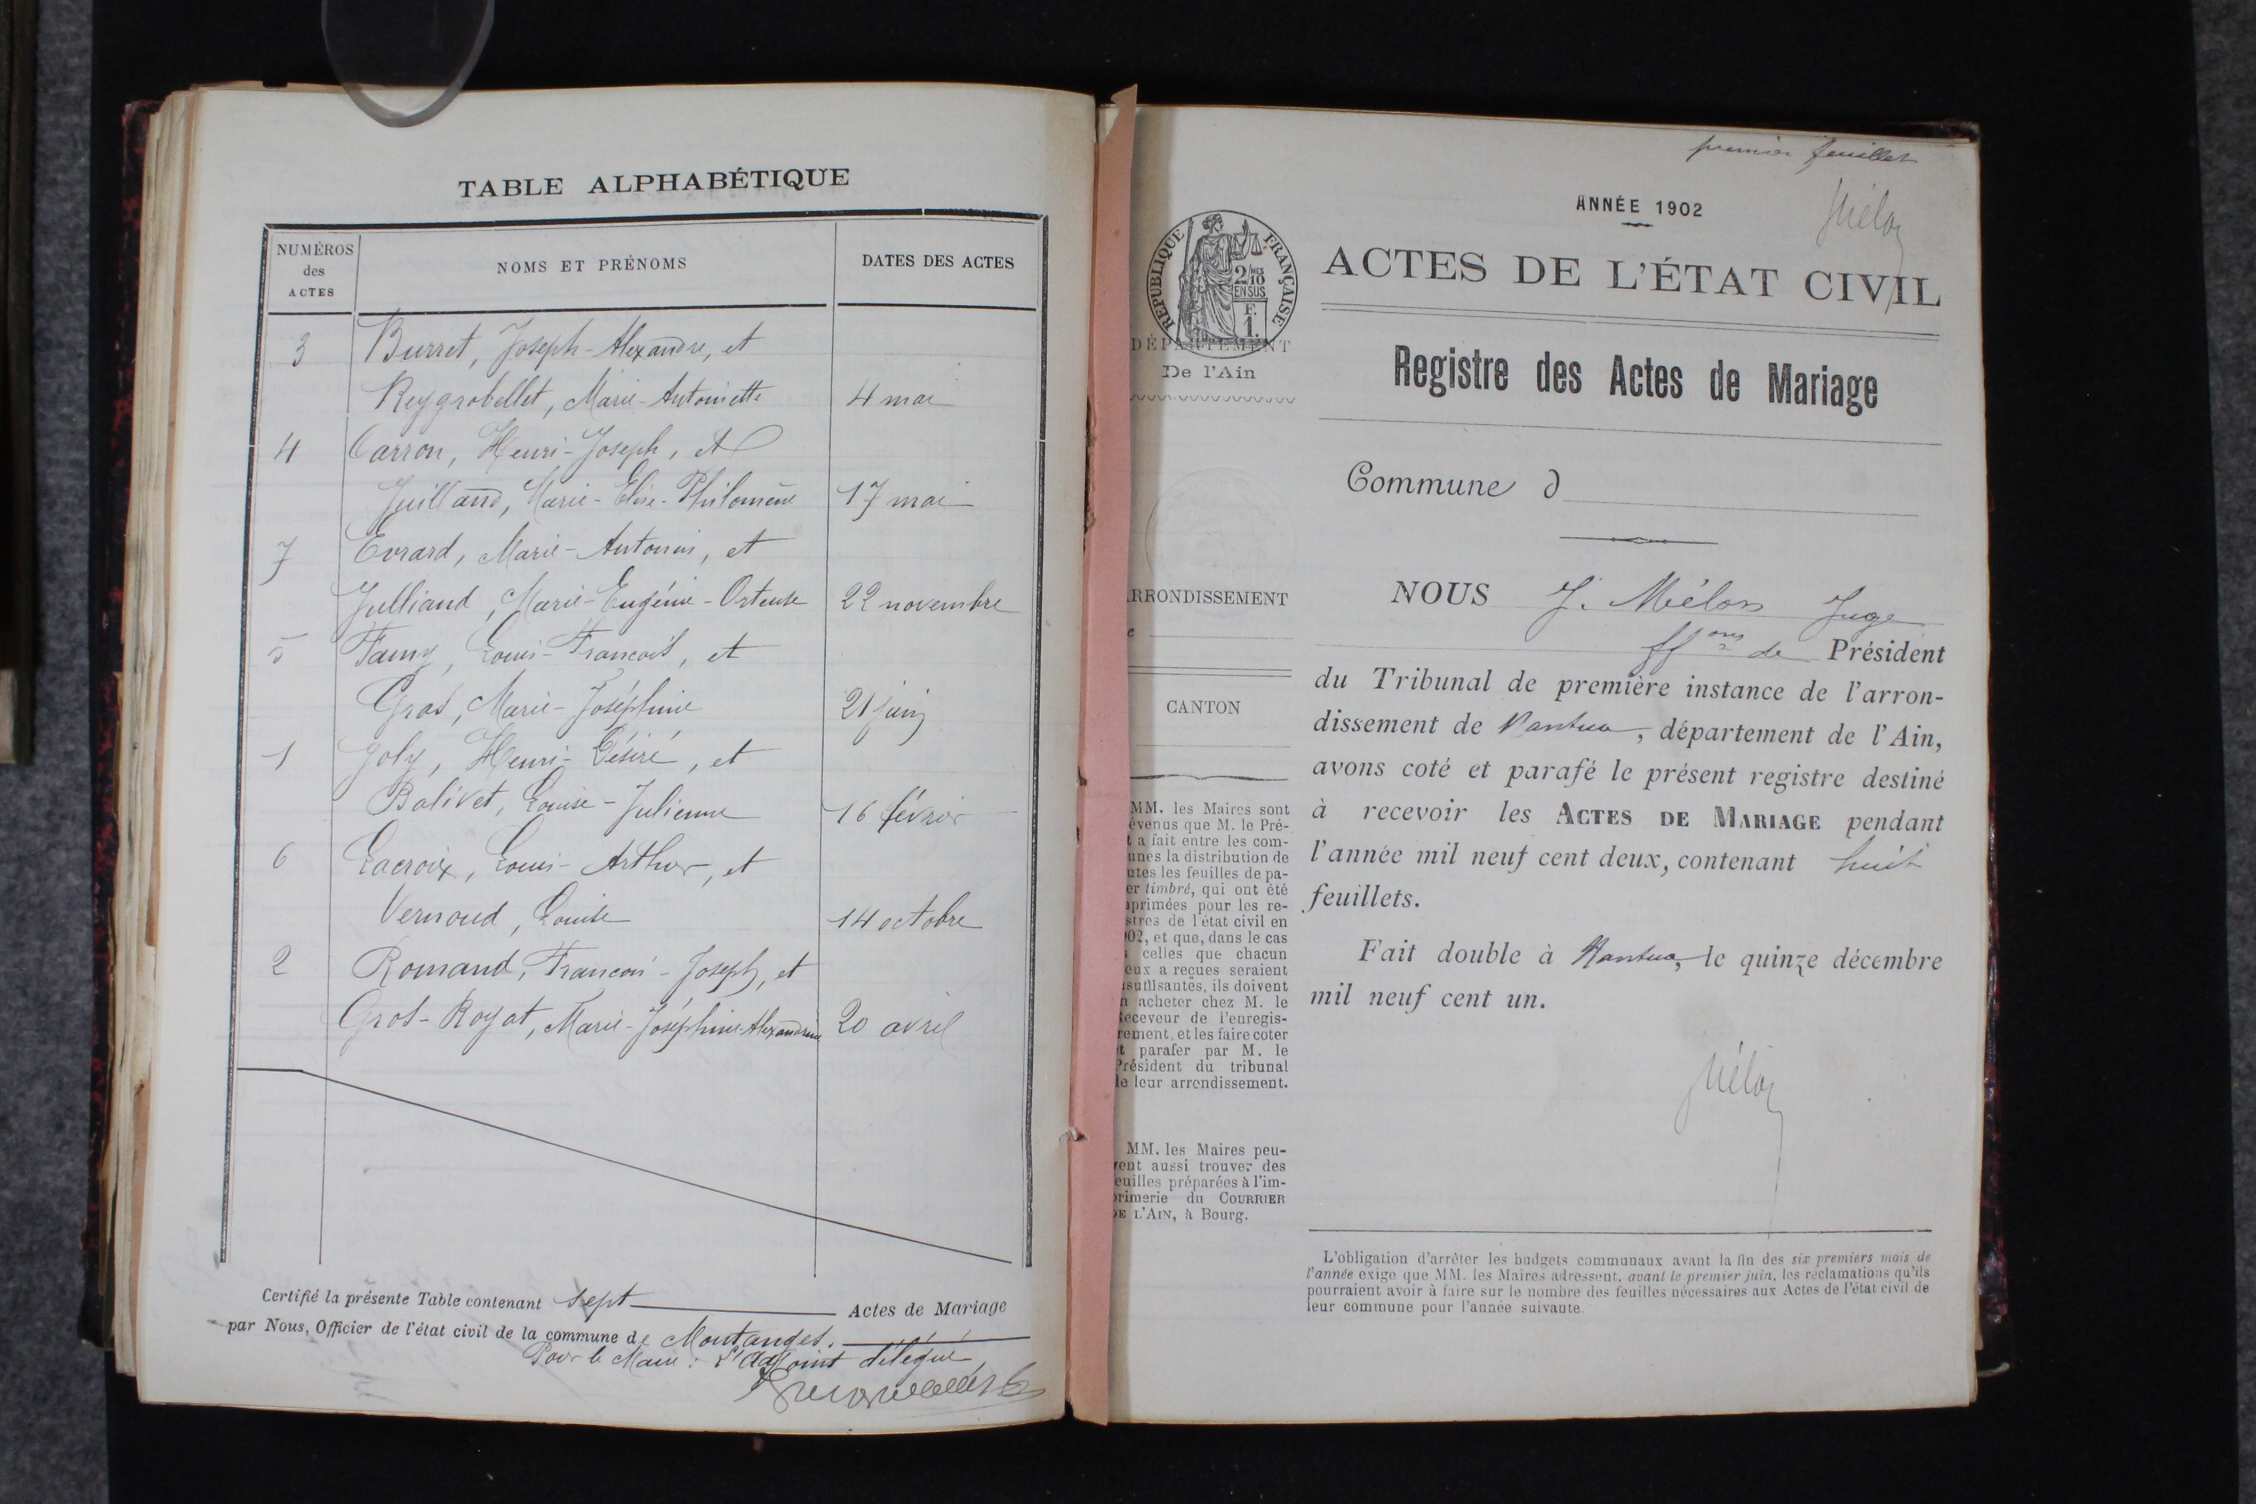 TABLE ALPHABÉTIQUE
NUMÉROS des ACTES
NOMS ET PRÉNOMS
DATES DES ACTES
3 Burret, Joseph-Alexandre, et
Reygrobellet, Marie-Antoinette 4 mai
4 Carron, Henri-Joseph, et
Juilland, Marie-Elise-Philomène 17 mai
7 Evrard, Marie-Antonin, et
Julliand, Marie-Eugénie-Ortense 22 novembre
5 Famy, Louis-François, et
Gros, Marie-Joséphine 21 juin
1 Joly, Henri-Désiré, et
Bolivet, Louise-Julienne 16 février
6 Lacroix, Louis-Arthur, et
Vernoud, Louise 14 octobre
2 Romand, François-Joseph, et
Gros-Royat, Marie-Joséphine Alexandrine 20 avril
Certifié la présente Table contenant sept Actes de Mariage
par Nous, Officier de l'état civil de la commune de Montanges.
Pour le Maire : L'adjoint délégué
premier feuillet
Miélon
ANNÉE 1902
ACTES DE L'ÉTAT CIVIL
Registre des Actes de Mariage
Commune d
NOUS J. Miélon Juge
ff ons de Président
du Tribunal de première instance de l'arron-
dissement de Nantua, département de l'Ain,
avons coté et parafé le présent registre destiné
à recevoir les ACTES DE MARIAGE pendant
l'année mil neuf cent deux, contenant huit
feuillets.
Fait double à Nantua, le quinze décembre
mil neuf cent un.
Miélon
L'obligation d'arrêter les budgets communaux avant la fin des six premiers mois de
l'année exige que MM. les Maires adressent, avant le premier juin, les réclamations qu'ils
pourraient avoir à faire sur le nombre des feuilles nécessaires aux Actes de l'état civil de
leur commune pour l'année suivante.
RÉPUBLIQUE FRANÇAISE
2/10
EN SUS
F.
1.
DÉPARTEMENT
De l'Ain
RRONDISSEMENT
CANTON
MM. les Maires sont
évenus que M. le Pré-
t a fait entre les com-
unes la distribution de
utes les feuilles de pa-
er timbré, qui ont été
primées pour les re-
stres de l'état civil en
02, et que, dans le cas
celles que chacun
eux a reçues seraient
suffisantes, ils doivent
n acheter chez M. le
eceveur de l'enregis-
rement, et les faire coter
t parafer par M. le
Président du tribunal
de leur arrondissement.
MM. les Maires peu-
vent aussi trouver des
euilles préparées à l'im-
primerie du COURRIER
DE L'AIN, à Bourg.